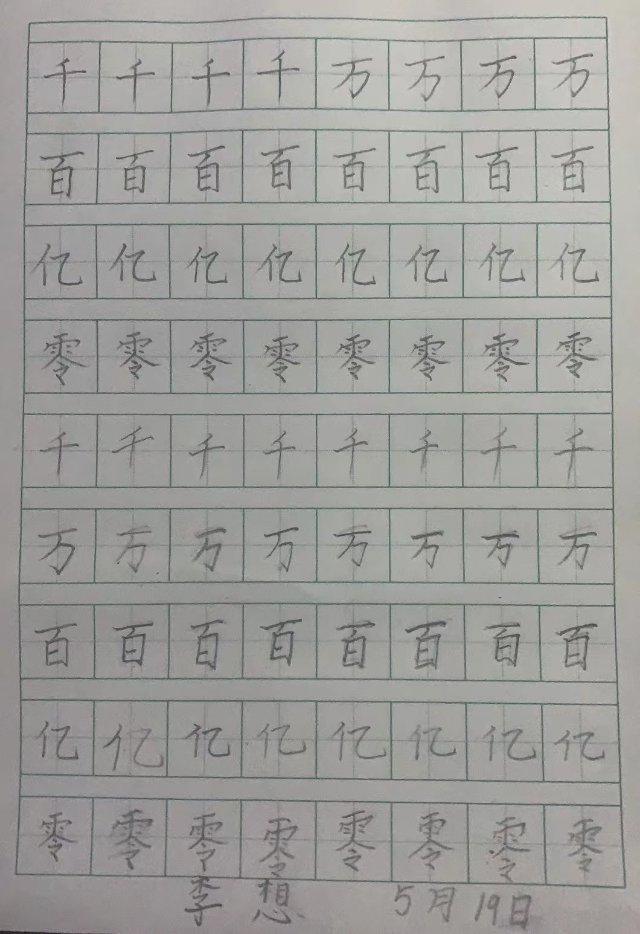 千千千千万万万万
百百百百百百百百
亿亿亿亿亿亿亿亿
零零零零零零零零
千千千千千千千千
万万万万万万万万
百百百百百百百百
亿亿亿亿亿亿亿亿
零零零零零零零零
李想 5月19日